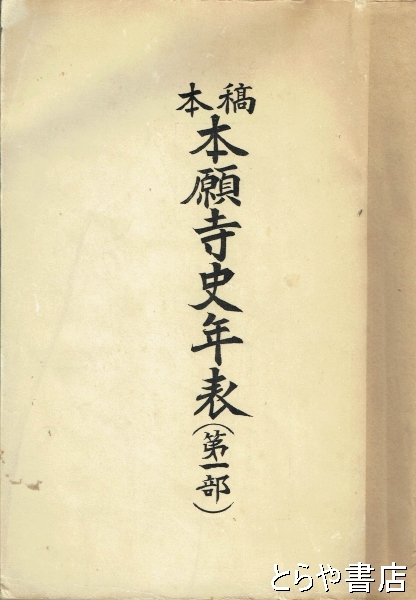 稿本
本願寺史年表(第一部)
とらや書店